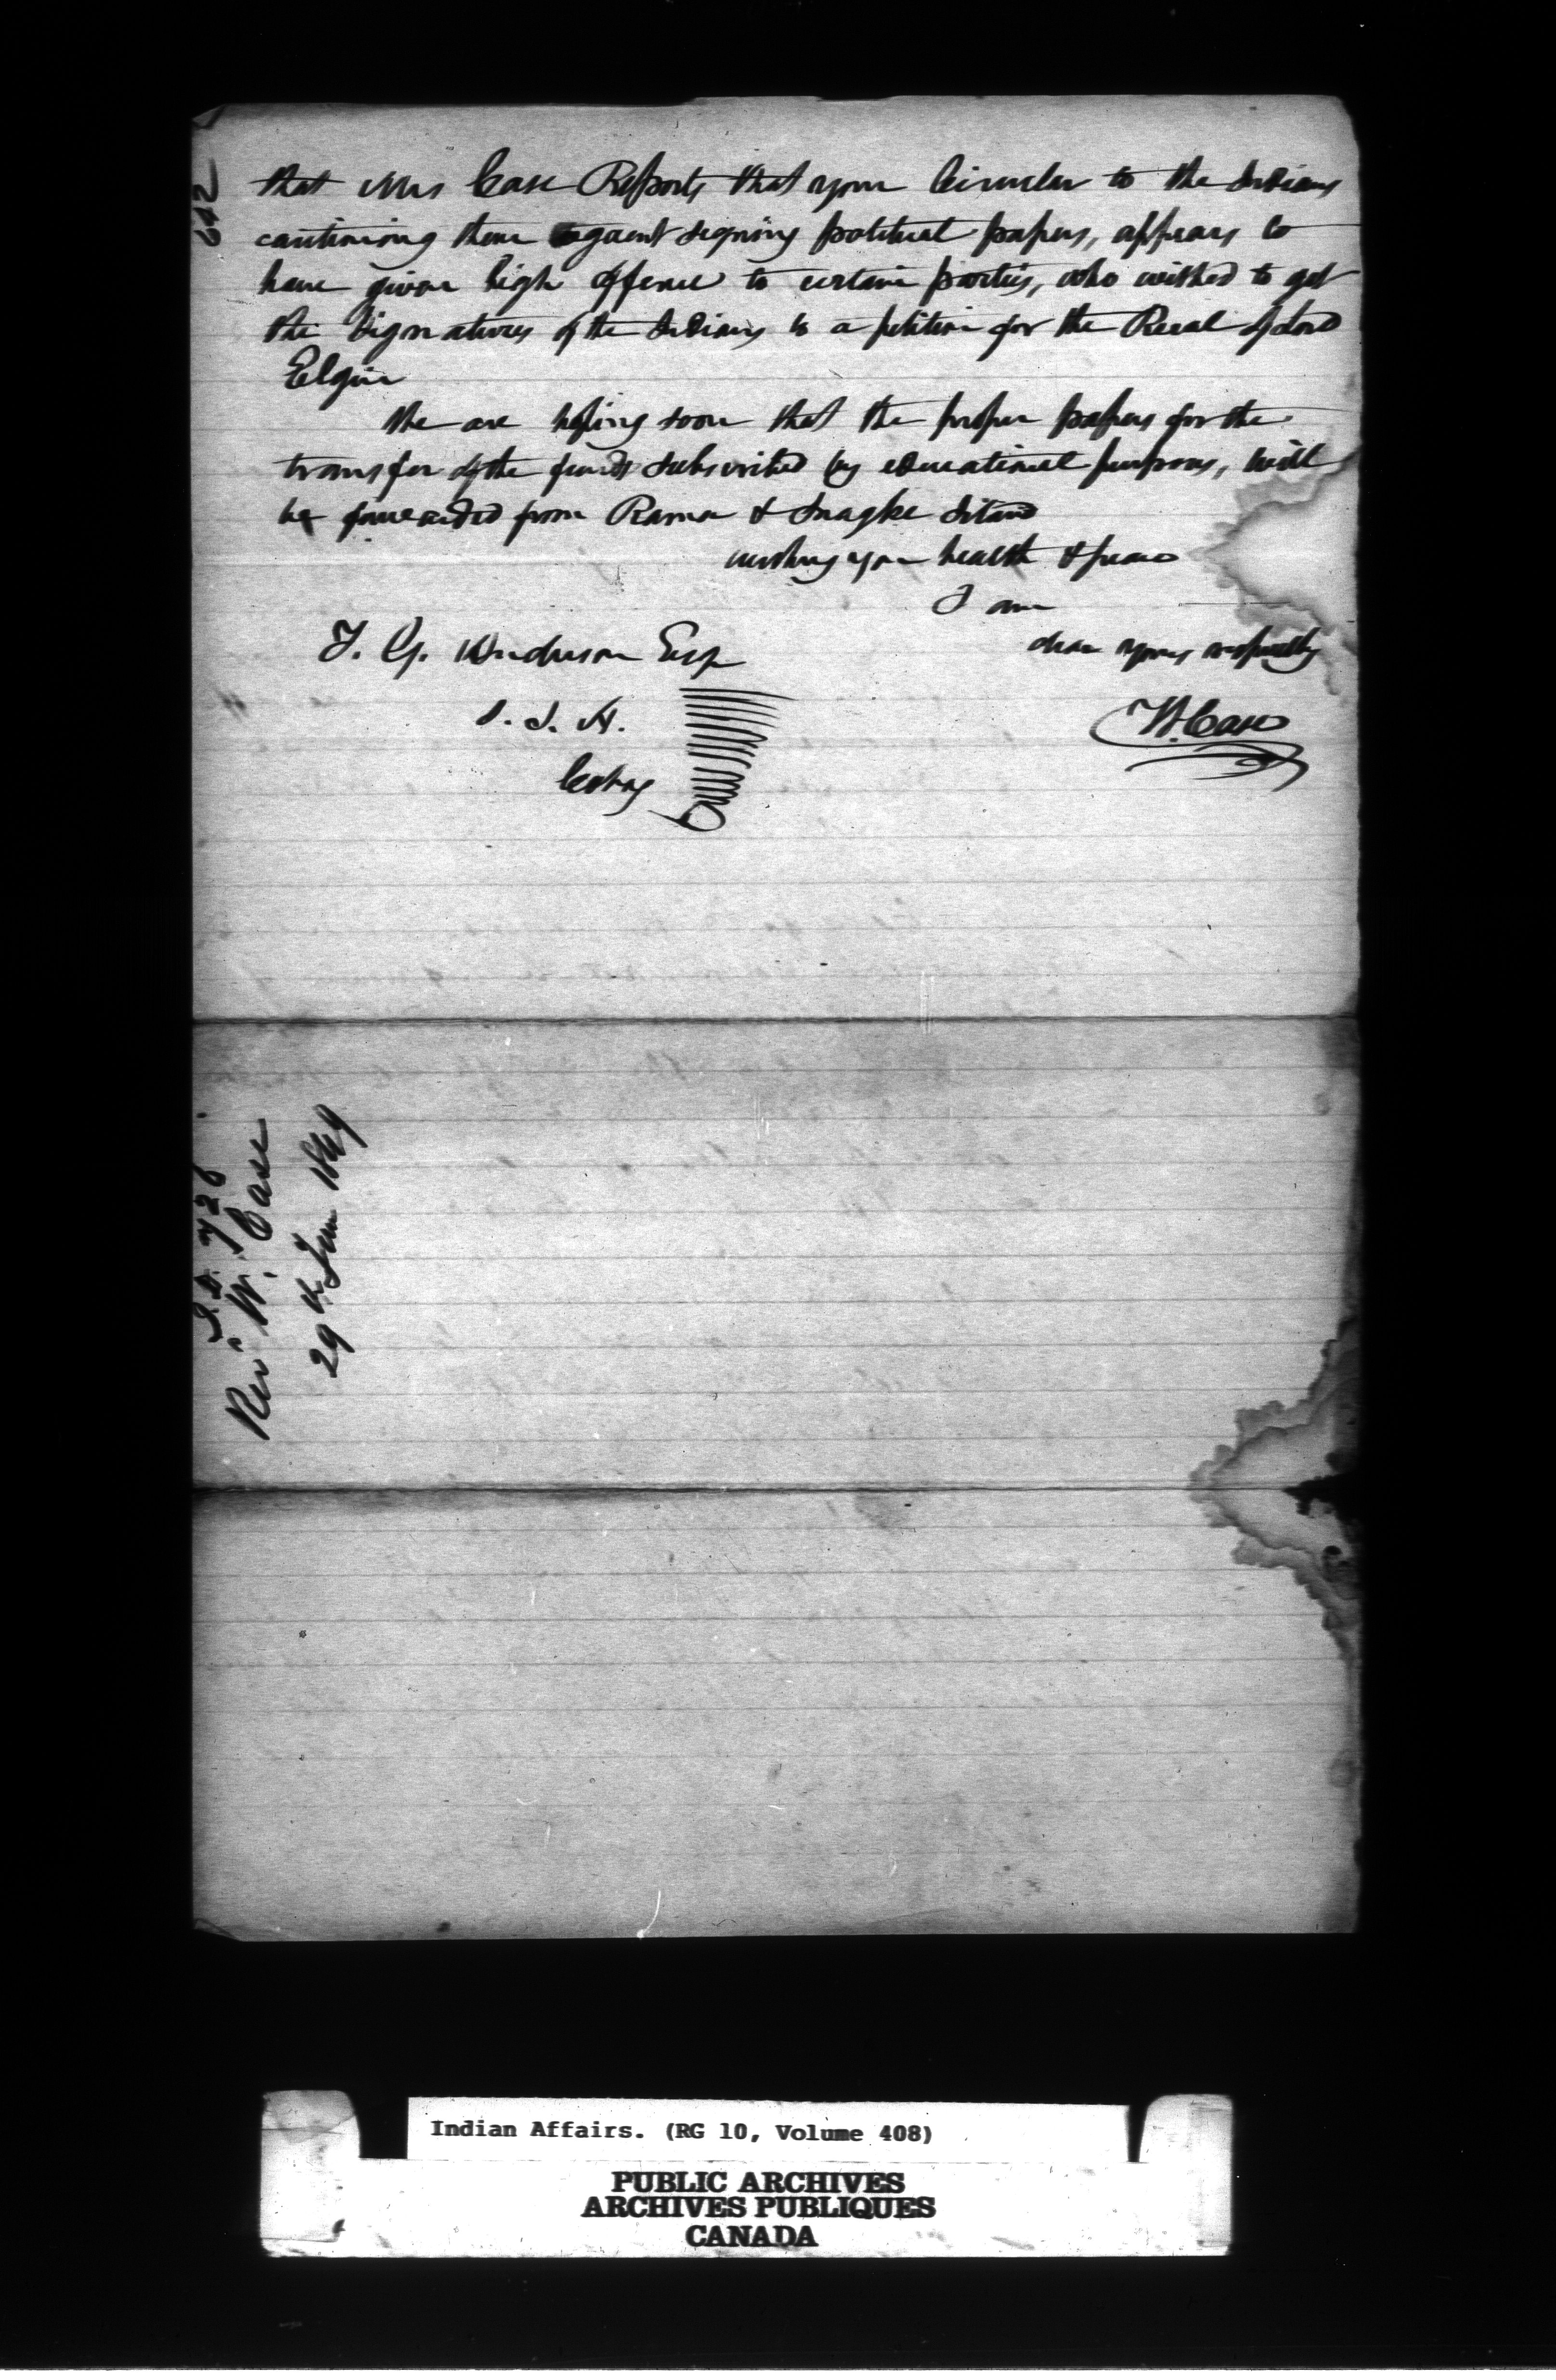 642
that Mrs Case Reports that your Circular to the Indians
cautioning them against signing political papers, appears to
have given high offence to certain parties, who wished to get
the Signatures of the Indians to a petition for the Recal of Lord
Elgin
We are hoping soon that the proper papers for the
transfer of the funds subscribed by educational purposes, will
be forwarded from Rama & Snake Island
wishing you health & peace
I am
dear yours respectfully
T. G. Anderson Esqr
S. I. A.
Cobrg
W. Case
726
Revd W. Case
29th June 1849
Indian Affairs. (RG 10, Volume 408)
PUBLIC ARCHIVES
ARCHIVES PUBLIQUES
CANADA